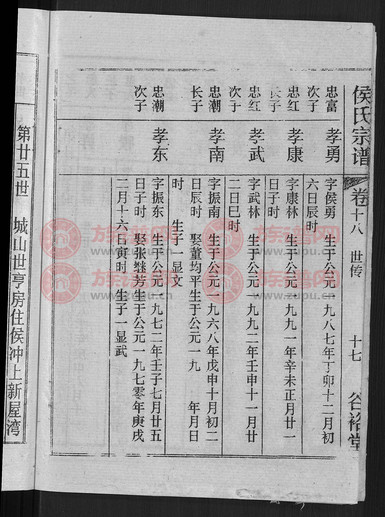 侯氏宗谱 卷十八 世传 十七 谷诒堂
忠富 孝勇 字侯勇 生于公元一九八七年丁卯十二月初
六日辰时
忠红长子 孝康 字康林 生于公元一九九一年辛未正月廿一
日子时
忠红次子 孝武 字武林 生于公元一九九二年壬申十一月廿
二日巳时
忠潮长子 孝南 字振南 生于公元一九六八年戊申十月初二
日辰时 娶董均平生于公元一九 年月日
时 生子一显文
忠潮次子 孝东 字振东 生于公元一九七二年壬子七月廿五
日子时 娶张继芳生于公元一九七零年庚戌
二月十六日寅时 生子一显武
第廿五世 城山世亨房住侯冲上新屋湾
族谱网